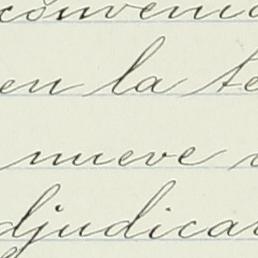 en la te
nueve
djudica